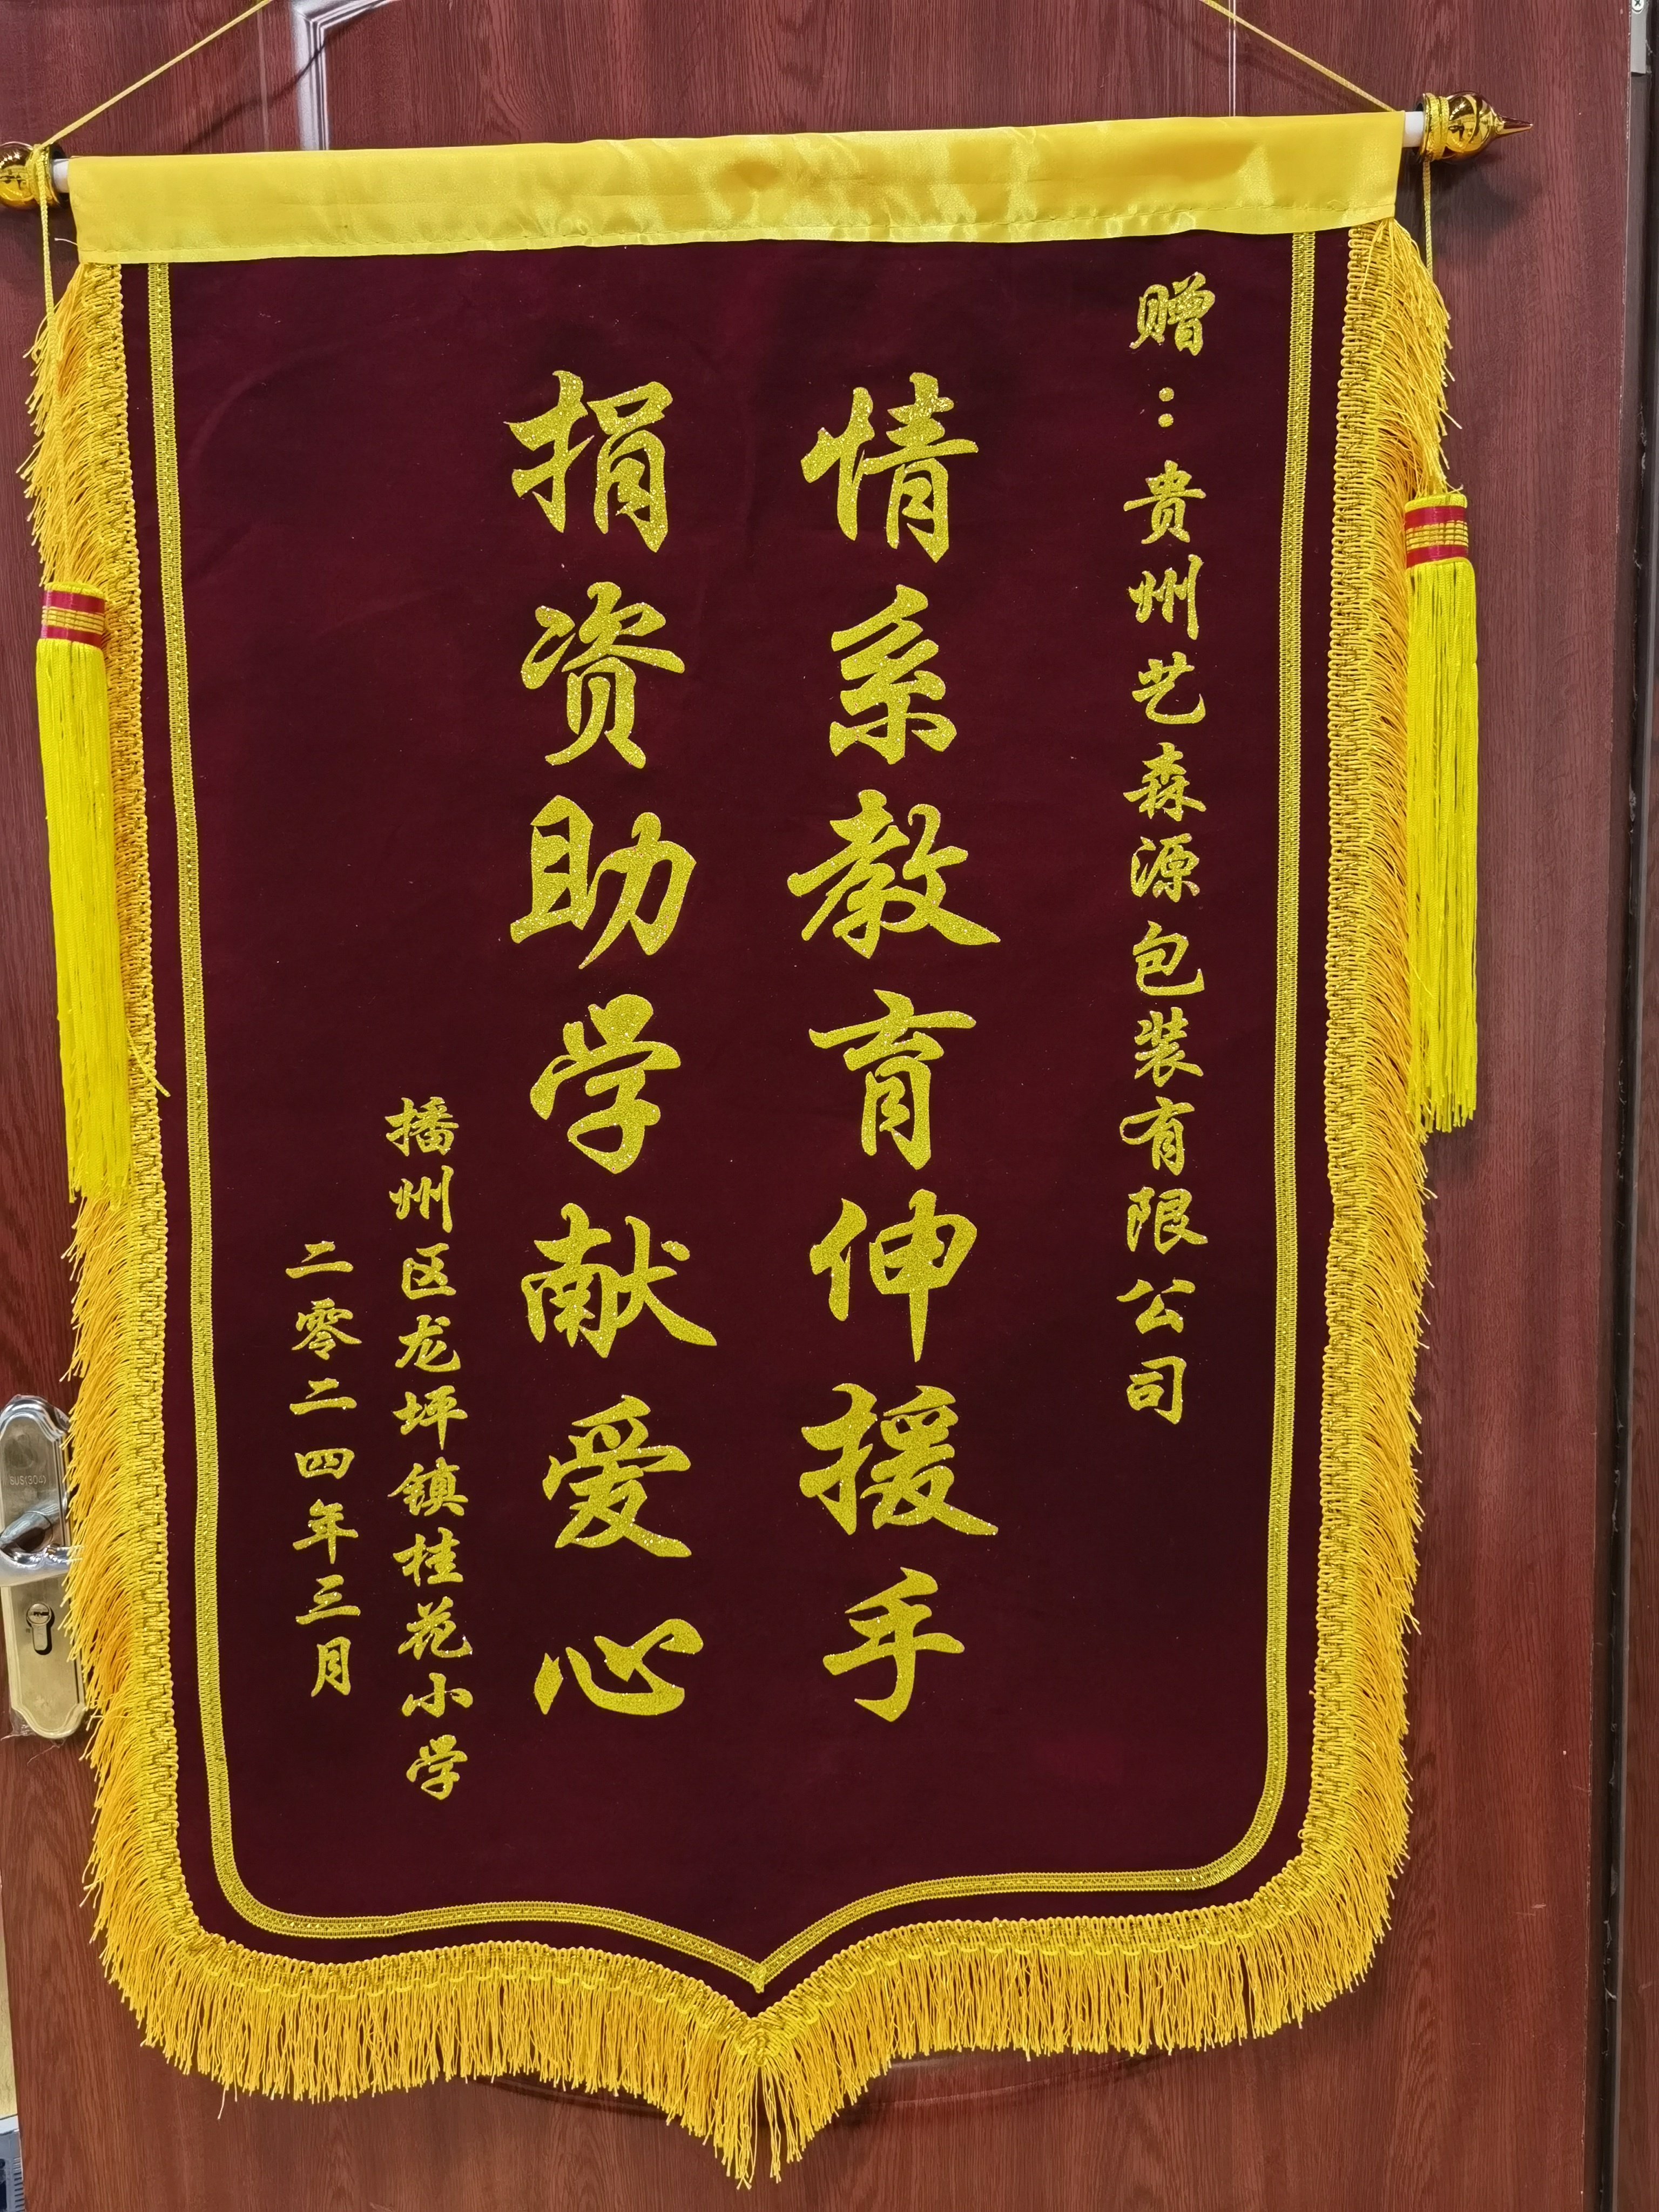 赠：贵州艺森源包装有限公司
情系教育伸援手
捐资助学献爱心
播州区龙坪镇桂花小学
二零二四年三月
SUS(304)